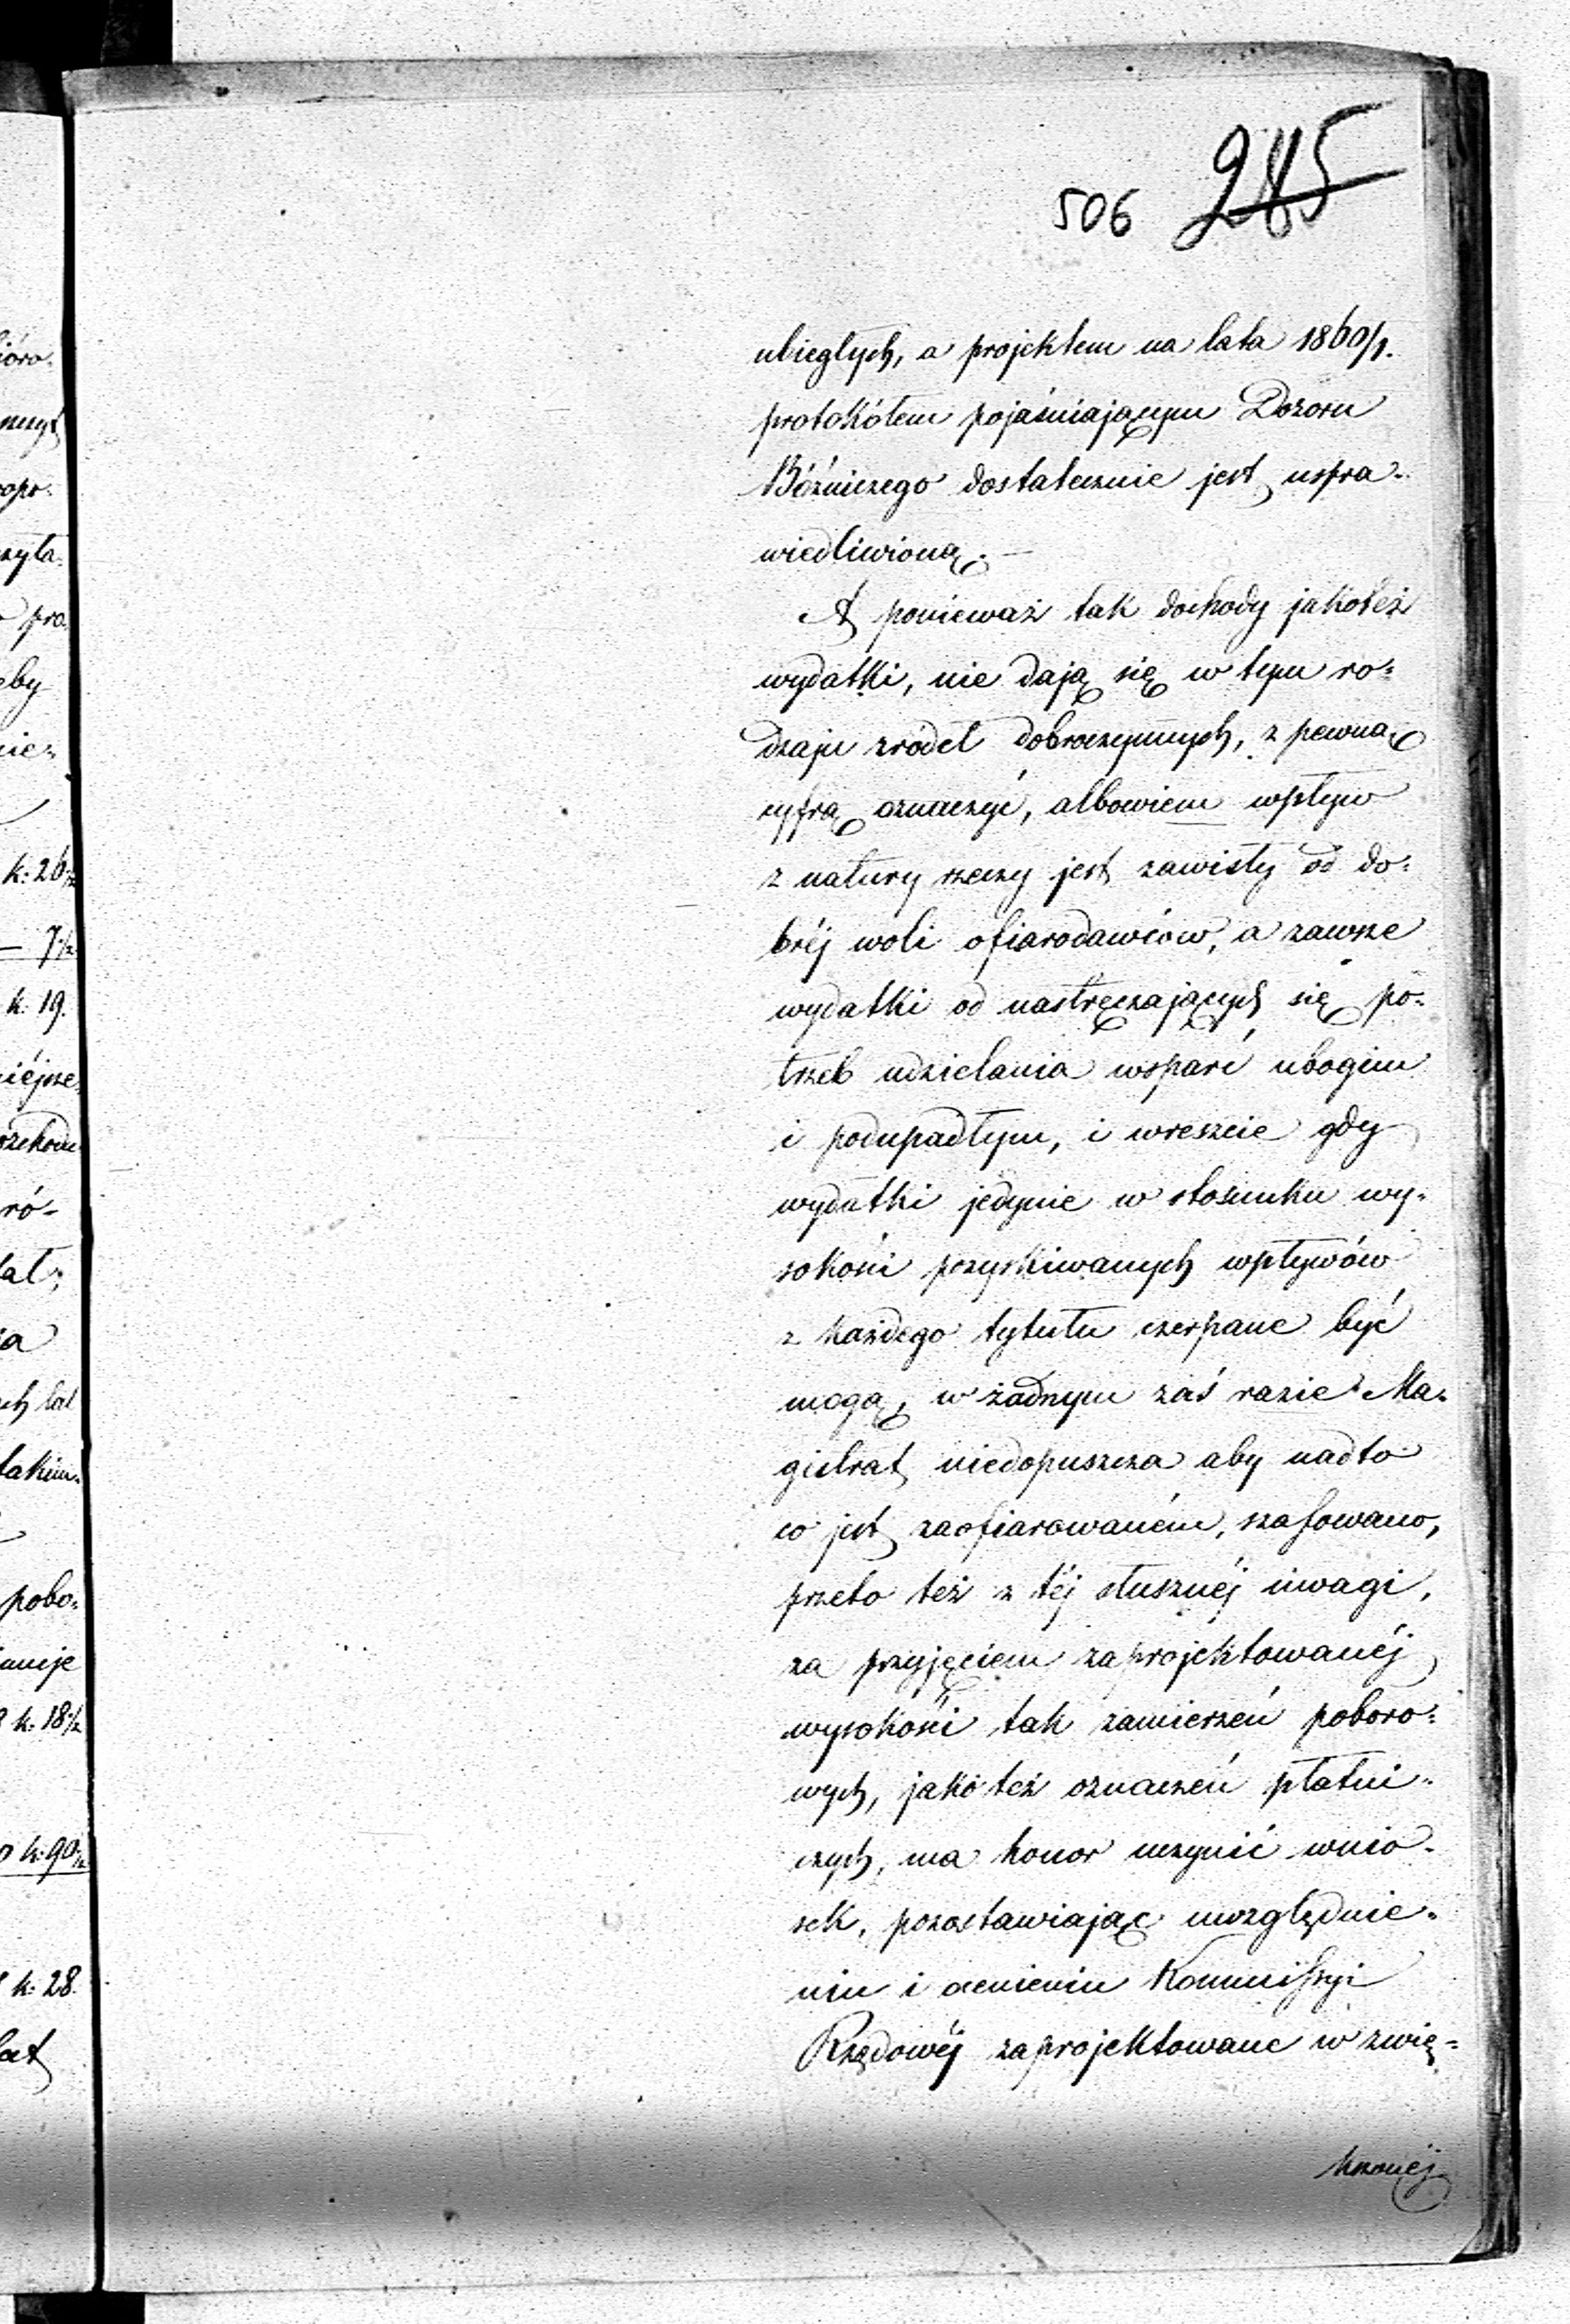 506 285
ubiegłych, a projektem na lata 1860/1.
protokółem pojaśniającym Dozoru
Bóźniczego dostatecznie jest uspra-
wiedliwioną. —
A ponieważ tak dochody jakoteż
wydatki, nie dają się w tym ro-
dzaju zródeł dobroczynnych, z pewną
cyfrą oznaczyć, albowiem wpływ
z natury rzeczy jest zawisły od do-
bréj woli ofiarodawców, a zawsze
wydatki od nastręczających się po-
trzeb udzielania wsparć ubogim
i podupadłym, i wreszcie gdy
wydatki jedynie w stosunku wy-
sokości pozyskiwanych wpływów
z każdego tytułu czerpane być
mogą, w żadnym zaś razie Ma-
gistrat niedopuszcza aby nadto
co jest zaofiarowaném, szafowano,
przeto też z téj słusznéj uwagi,
za przyjęciem zaprojektowanéj
wysokości tak zamierzeń poboro-
wych, jako też oznaczeń płatni-
czych, ma honor uczynić wnio-
sek, pozostawiając uwzględnie-
niu i ocenieniu Kommissyi
Rządowéj zaprojektowane w zwię-
kszonéj
ióro-
czyta-
pro-
eby
nie-
k: 26 1/2
— 7 1/2
k: 19.
niéjsze
ró-
ch lat
takim-
pobo-
k: 18 1/2
k: 90 1/2
k: 28.
lat